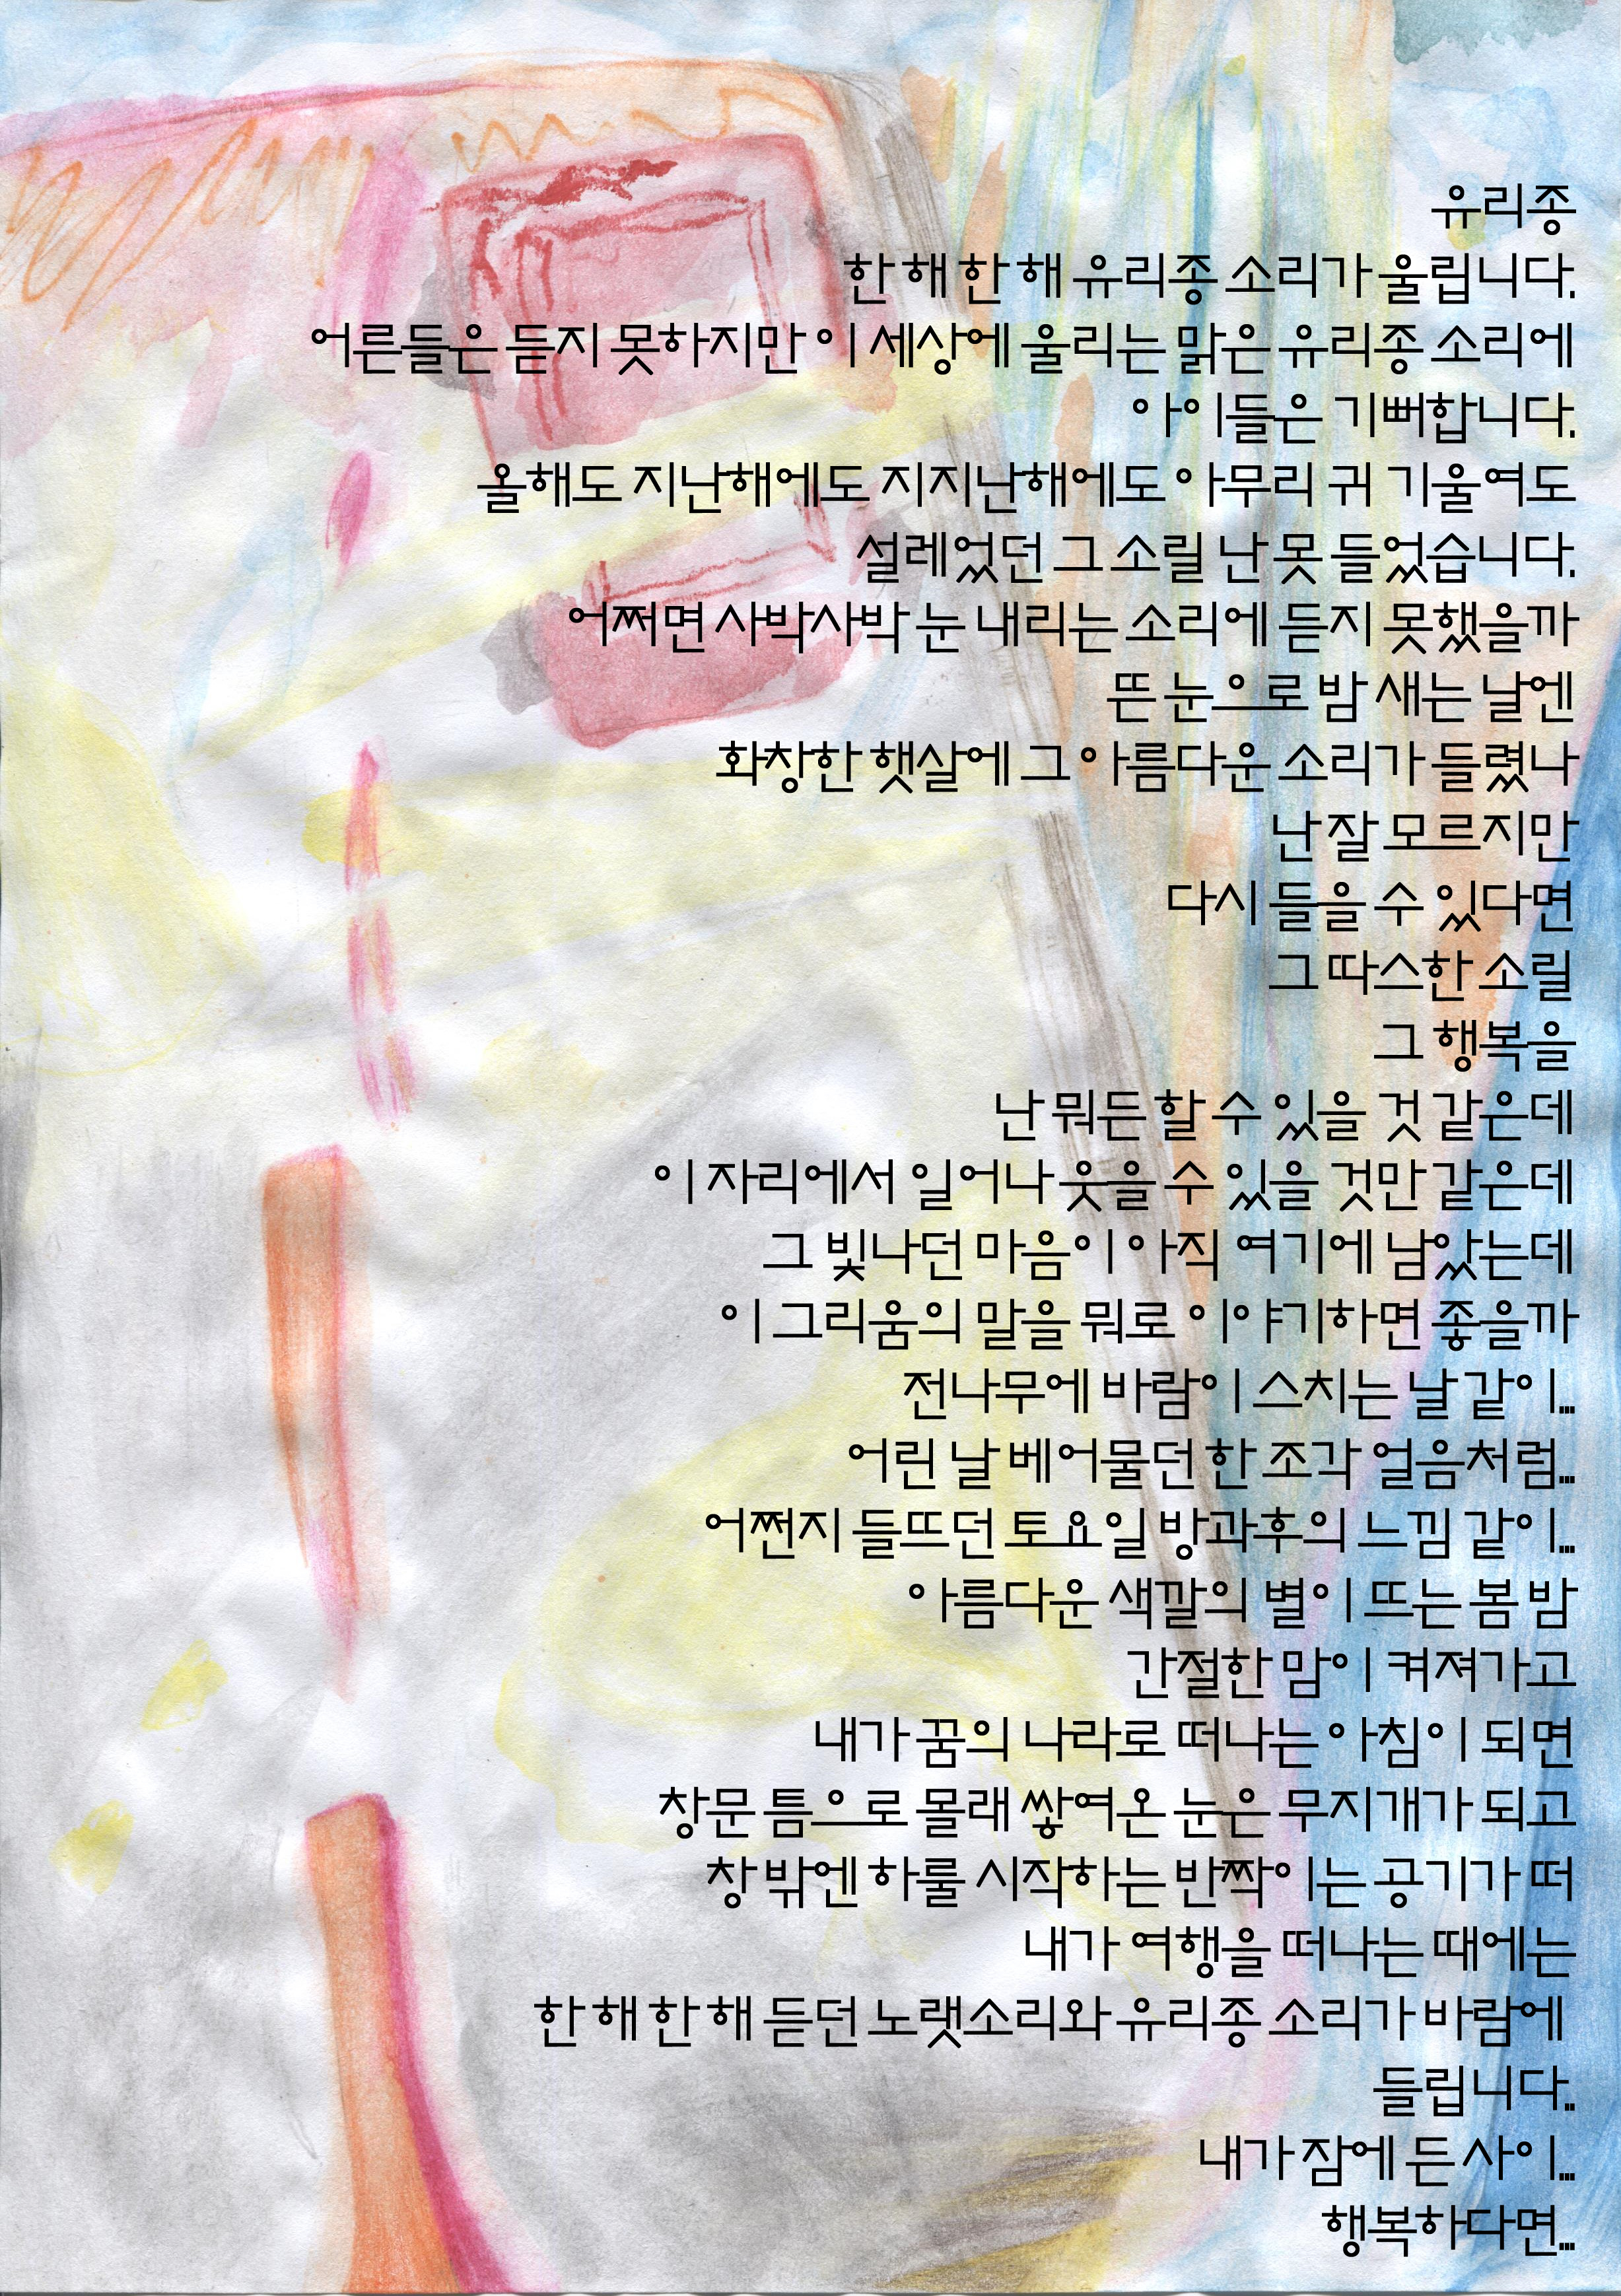 유리종
한 해 한 해 유리종 소리가 울립니다.
어른들은 듣지 못하지만 이 세상에 울리는 맑은 유리종 소리에
아이들은 기뻐합니다.
올해도 지난해에도 지지난해에도 아무리 귀 기울여도
설레었던 그 소릴 난 못 들었습니다.
어쩌면 사박사박 눈 내리는 소리에 듣지 못했을까
뜬 눈으로 밤 새는 날엔
화창한 햇살에 그 아름다운 소리가 들렸나
난 잘 모르지만
다시 들을 수 있다면
그 따스한 소릴
그 행복을
난 뭐든 할 수 있을 것 같은데
이 자리에서 일어나 웃을 수 있을 것만 같은데
그 빛나던 마음이 아직 여기에 남았는데
이 그리움의 말을 뭐로 이야기하면 좋을까
전나무에 바람이 스치는 날 같이...
어린 날 베어물던 한 조각 얼음처럼...
어쩐지 들뜨던 토요일 방과후의 느낌 같이...
아름다운 색깔의 별이 뜨는 봄 밤
간절한 맘이 켜져가고
내가 꿈의 나라로 떠나는 아침이 되면
창문 틈으로 몰래 쌓여온 눈은 무지개가 되고
창 밖엔 하룰 시작하는 반짝이는 공기가 떠
내가 여행을 떠나는 때에는
한 해 한 해 듣던 노랫소리와 유리종 소리가 바람에
들립니다..
내가 잠에 든 사이...
행복하다면...